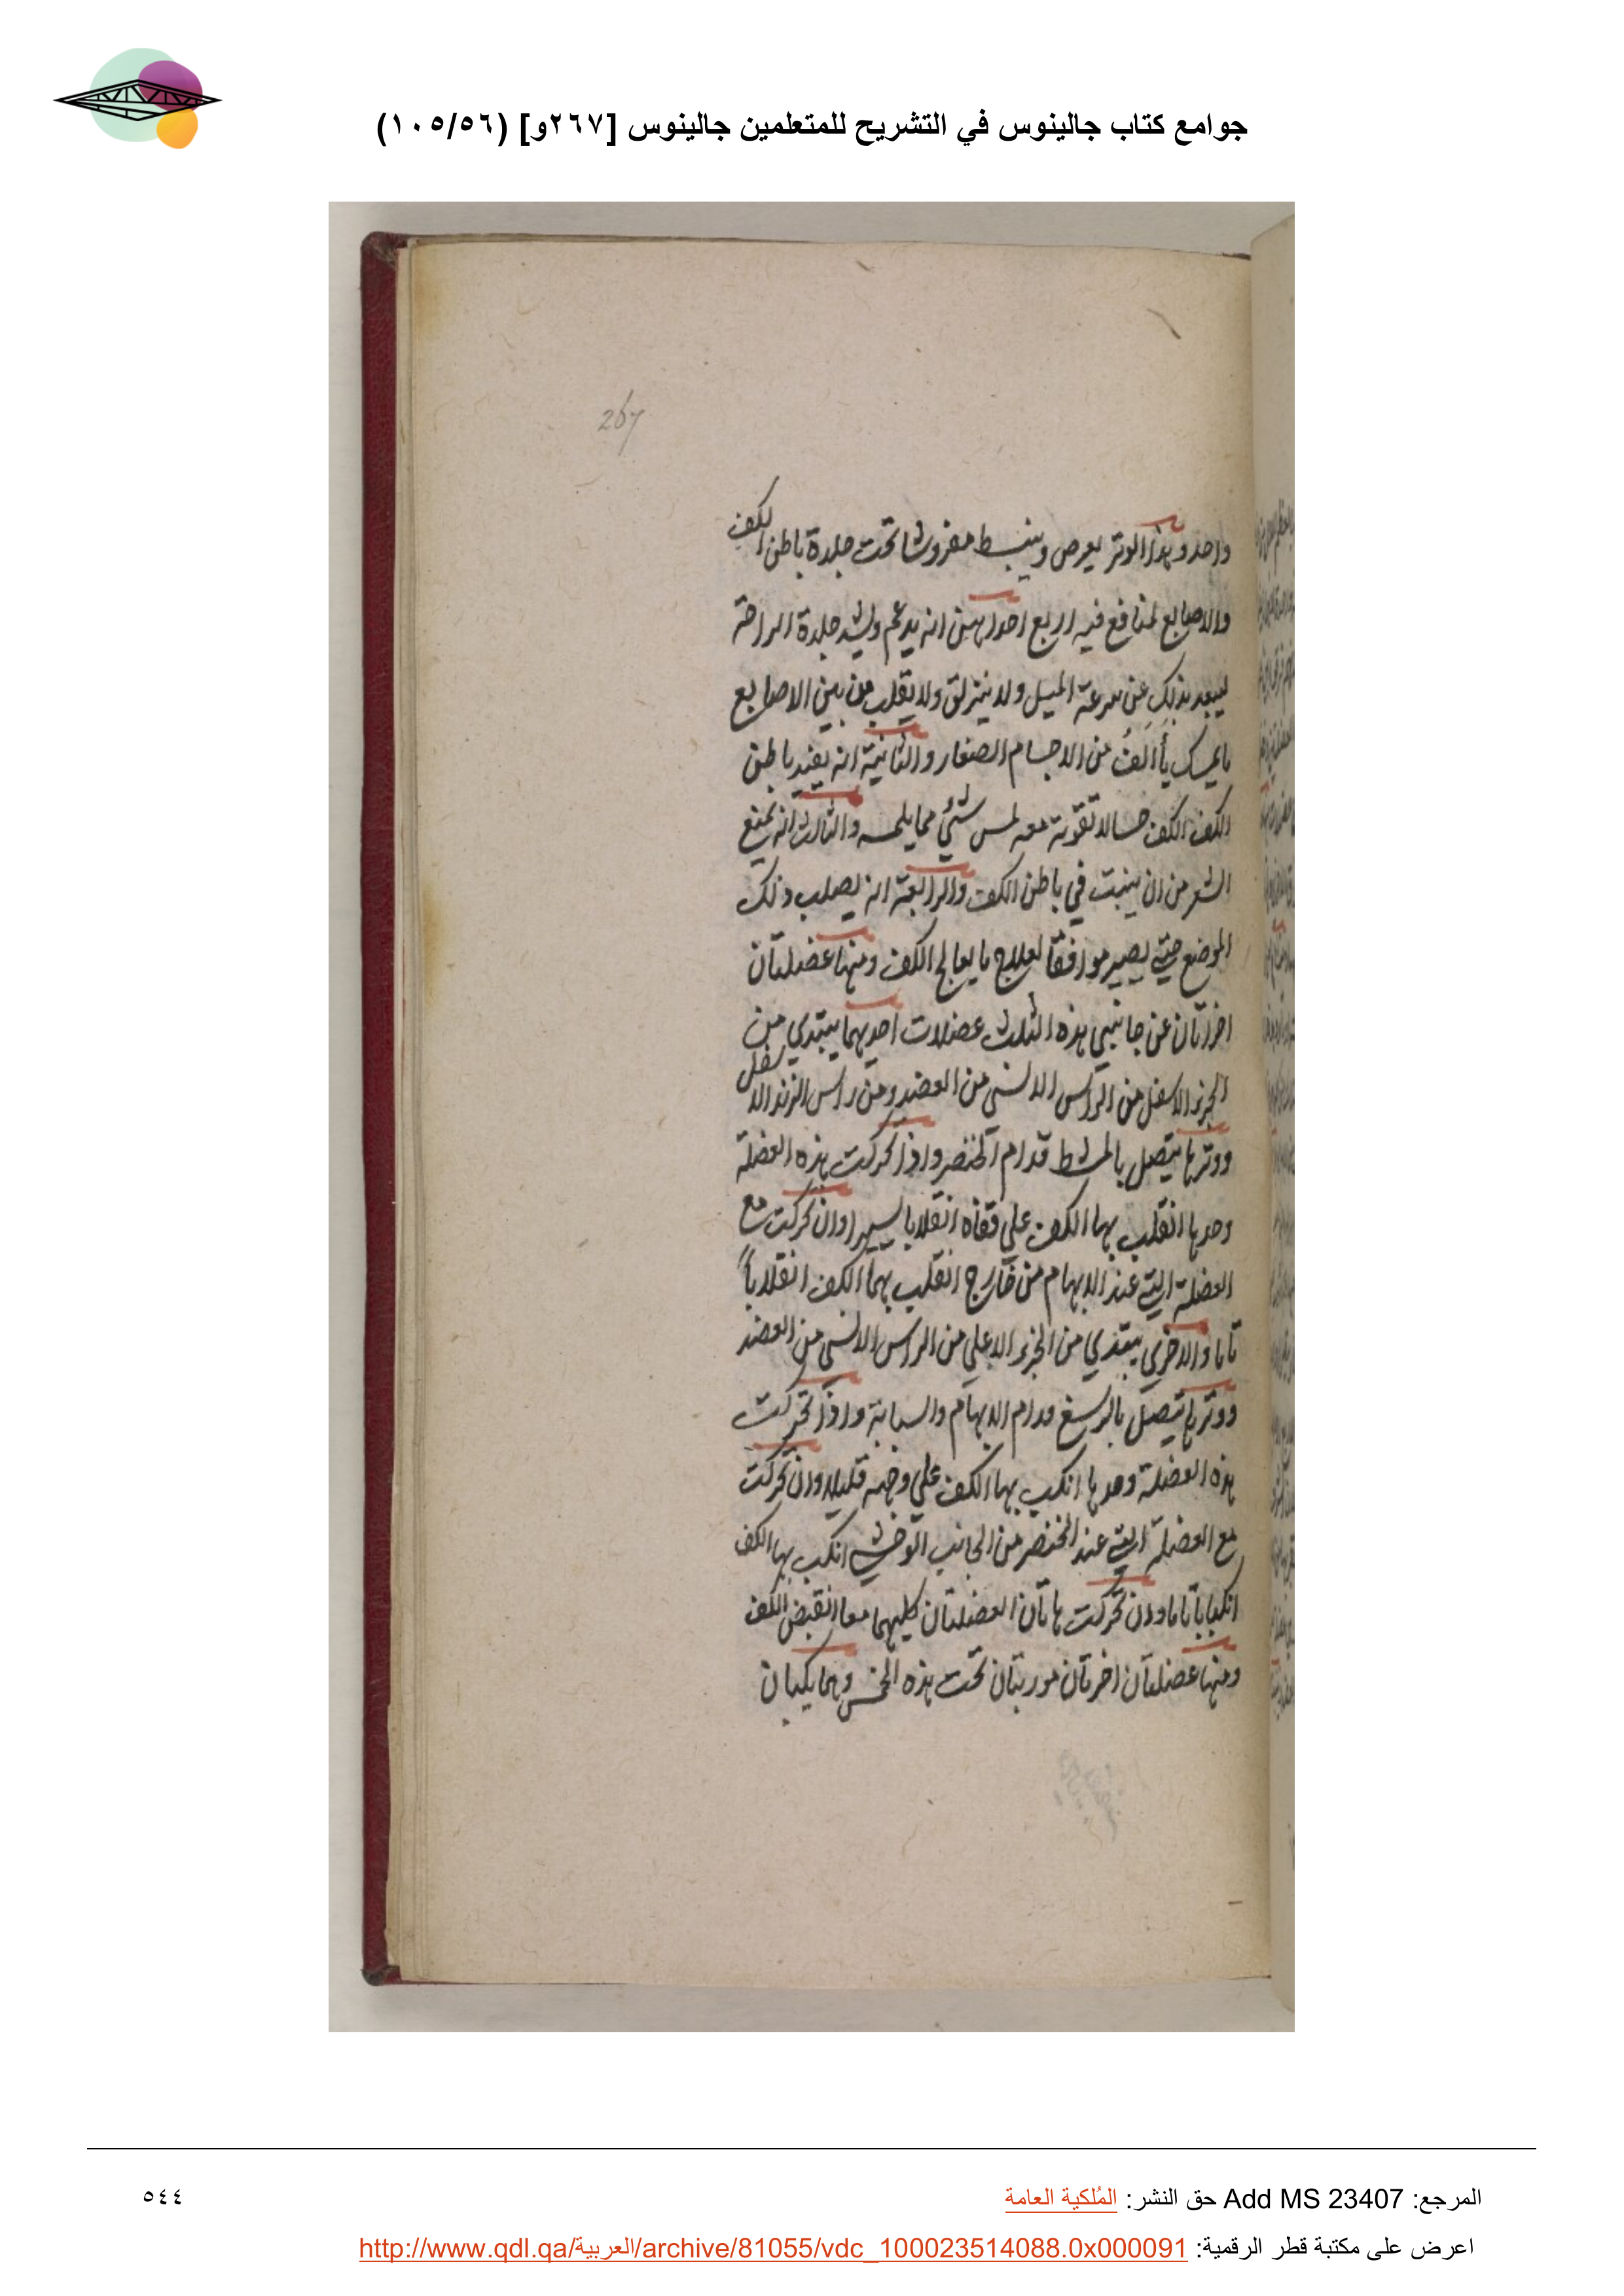 جوامع كتاب جالينوس في التشريح للمتعلمين جالينوس [٢٦٧و] (١٠٥/٥٦)
267
واحد وهذا الوتر يعرض وينبسط مفروشا تحت جلدة باطن الكف
والاصابع لمنافع فيه اربع احداهن انه يدعم ويشد جلدة الراحة
ليبعد بذلك عن سرعة الميل ولا ينزلق ولا يقلب من بين الاصابع
ما يمسك من الاجسام الصغار والثانية انه يفيد باطن
الكف الكف حسا لا تفوته معه لمس شئ مما يلمسه والثالث انه يمنع
الشعر من ان ينبت في باطن الكف والرابعة انه يصلب ذلك
الموضع حتى يصير موافقا لعلاج ما يعالج الكف ومنها عضلتان
اخرتان عن جانبي هذه الثلث عضلات احديهما يبتدي من
الجزء الاسفل من الراس الانسي من العضد ومن راس الزند الاسفل
ووترها يتصل بالمشط قدام الخنصر واذا تحركت هذه العضلة
وحدها انقلب بها الكف على قفاه انقلابا يسيرا وان تحركت مع
العضلة التي عند الابهام من خارج انقلب بهما الكف انقلاباً
تاما والاخرى يبتدي من الجزء الاعلى من الراس الانسي من العضد
ووترها يتصل بالرسغ قدام الابهام والسبابة واذا تحركت
هذه العضلة وحدها انكب بها الكف على وجهه قليلا وان تحركت
مع العضلة التي عند الخنصر من الجانب الوحشي انكب بها الكف
انكبابا تاما وان تحركت هاتان العضلتان كليهما معا انقبض الكف
ومنها عضلتان اخرتان موربتان تحت هذه الخمس وهما يكبان
المرجع: Add MS 23407 حق النشر: المُلكية العامة
٥٤٤
اعرض على مكتبة قطر الرقمية: http://www.qdl.qa/العربية/archive/81055/vdc_100023514088.0x000091